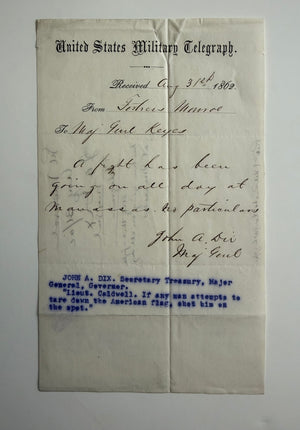 United States Military Telegraph.
Received Aug 31st 1862
From Fortress Monroe
To Maj Genl Keyes
A fight has been
going on all day at
Manassas. No particulars
John A. Dix
Maj Genl
JOHN A. DIX. Secretary Treasury, Major
General, Governor.
"Lieut. Caldwell. If any man attempts to
tare down the American flag, shot him on
the spot."